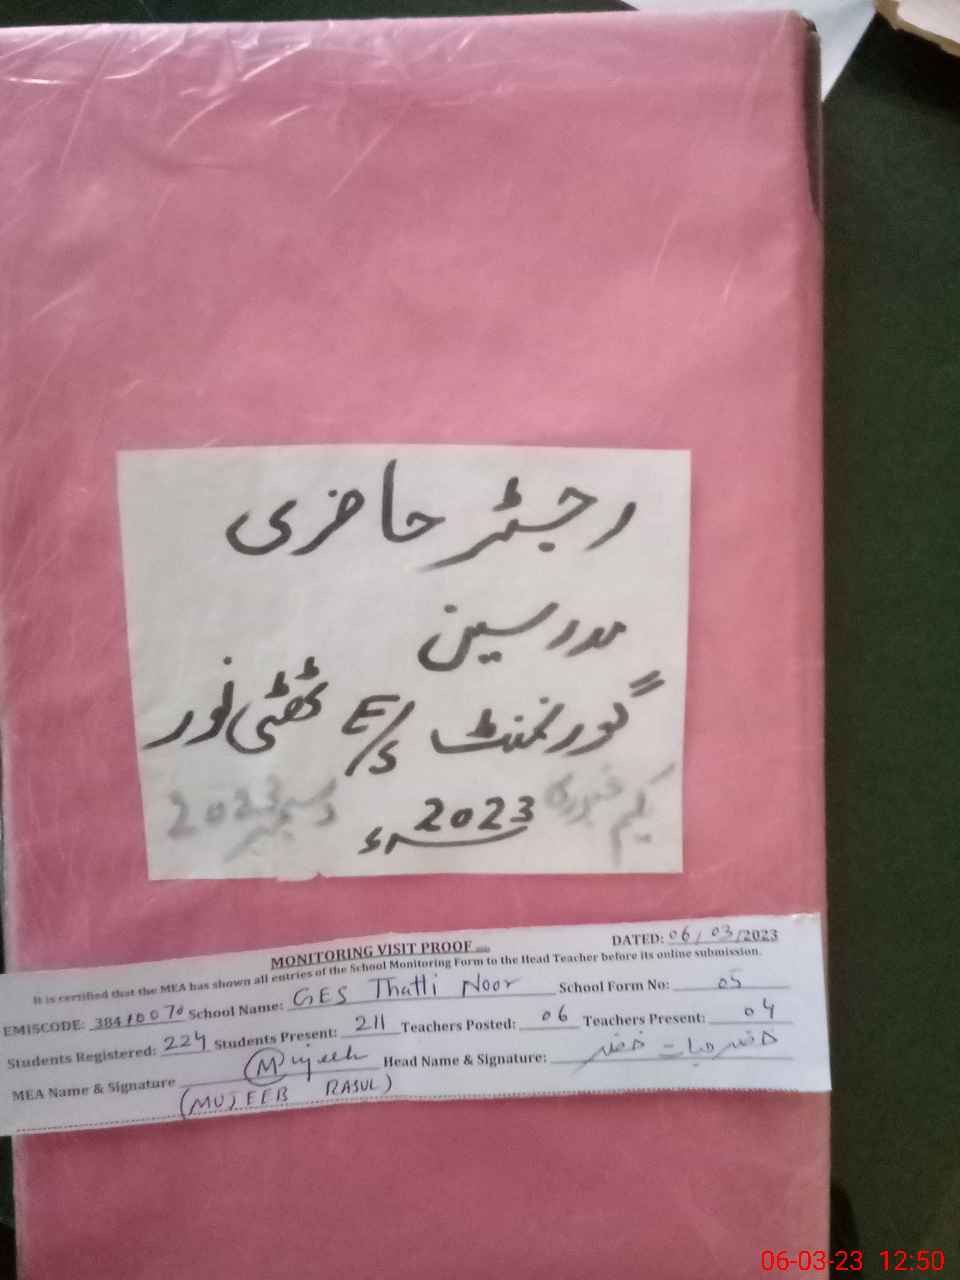 رجسٹر حاضری
مدرسین
گورنمنٹ E/S ٹھٹی نور
یکم جنوری 2023ء دسمبر 2023
MONITORING VISIT PROOF
DATED: 06/03/2023
It is certified that the MEA has shown all entries of the School Monitoring Form to the Head Teacher before its online submission.
EMISCODE: 38410070 School Name: GES Thatti Noor School Form No: 05
Students Registered: 224 Students Present: 211 Teachers Posted: 06 Teachers Present: 04
MEA Name & Signature Mujeeb Head Name & Signature: خضر حیات خضر
(MUJEEB RASUL)
06-03-23 12:50